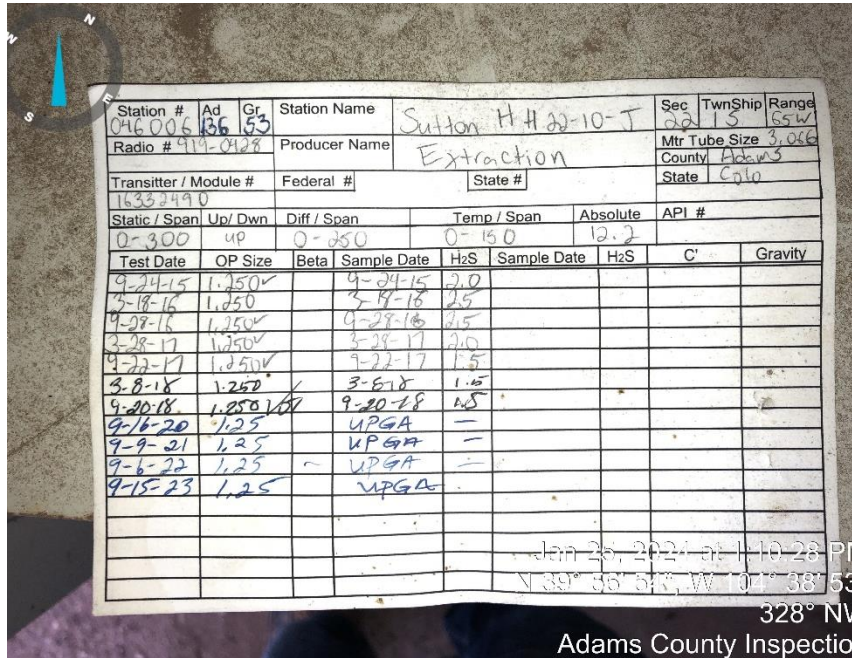 N
W
E
S
Station # Ad Gr Station Name Sec TwnShip Range
046006 136 53 Sutton HH 22-10-J 22 1S 65W
Radio # 919-0428 Producer Name Extraction Mtr Tube Size 3.066
County Adams
Transitter / Module # Federal # State # State Colo
16332490
Static / Span Up/ Dwn Diff / Span Temp / Span Absolute API #
0-300 up 0-250 0-150 12.2
Test Date OP Size Beta Sample Date H2S Sample Date H2S C' Gravity
9-24-15 1.250✓ 9-24-15 2.0
3-18-16 1.250 3-18-16 2.5
9-28-16 1.250✓ 9-28-16 2.5
3-28-17 1.250✓ 3-28-17 2.0
9-22-17 1.250✓ 9-22-17 1.5
3-8-18 1.250 3-8-18 1.5
9-20-18 1.250 9-20-18 1.5
9-16-20 1.25 UPGA —
9-9-21 1.25 UPGA —
9-6-22 1.25 – UPGA —
9-15-23 1.25 UPGA
Jan 25, 2024 at 1:10:28 P
N 39° 56' 54", W 104° 38' 53
328° NW
Adams County Inspectio